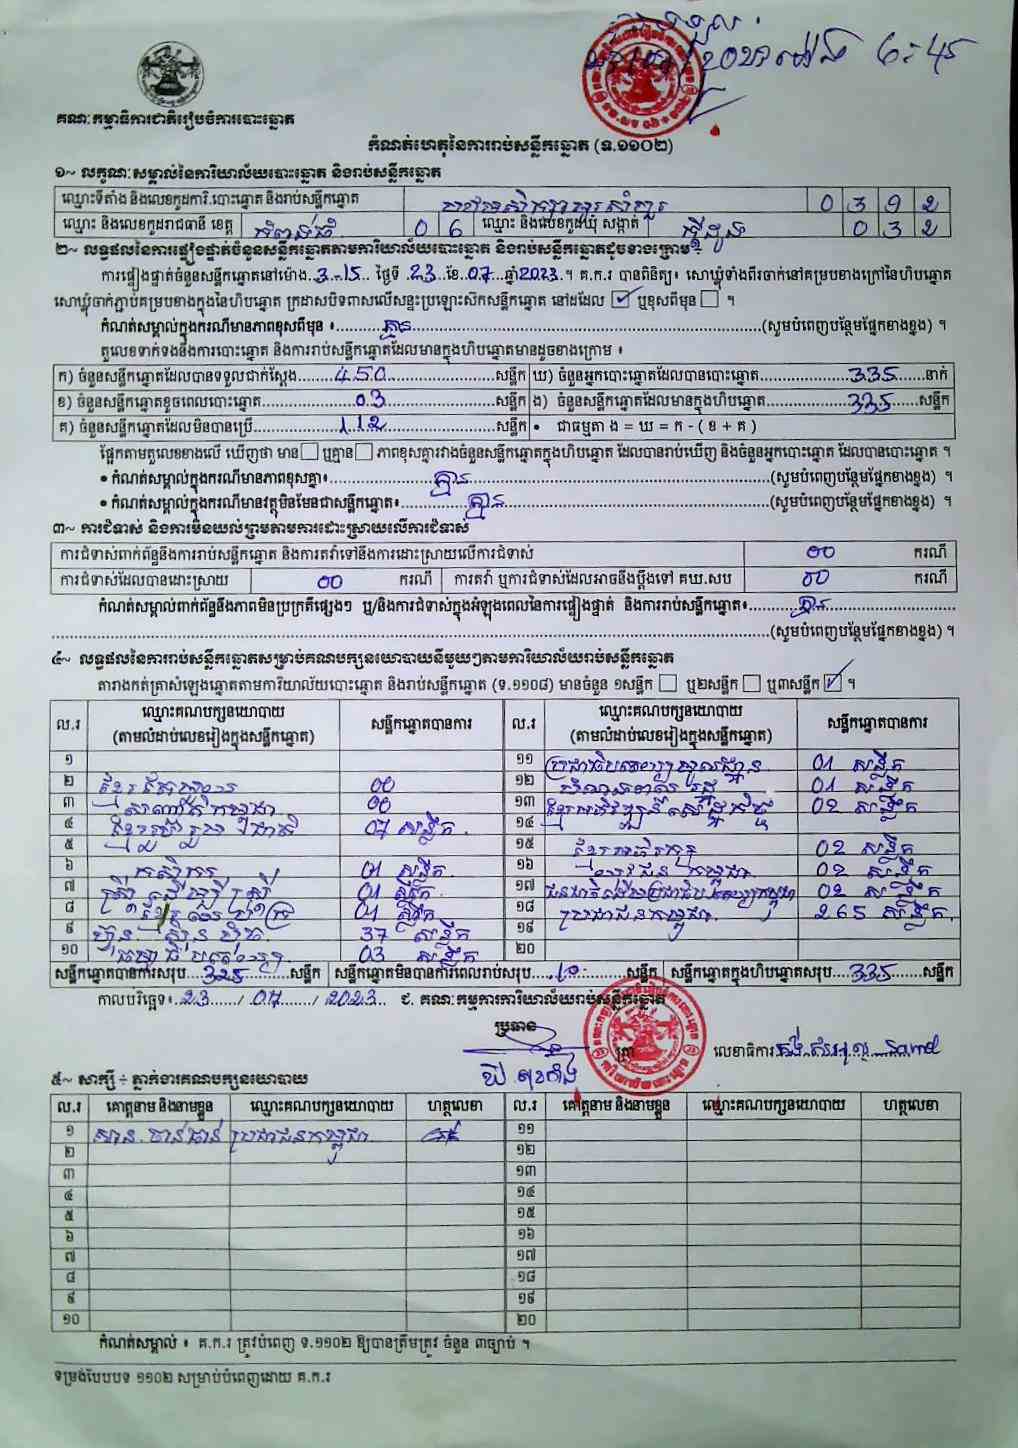 គណៈកម្មាធិការជាតិរៀបចំការបោះឆ្នោត
៦:45
កំណត់ហេតុនៃការរាប់សន្លឹកឆ្នោត (ទ.១១០២)
១~ លក្ខណៈសម្គាល់នៃការិយាល័យបោះឆ្នោត និងរាប់សន្លឹកឆ្នោត
ឈ្មោះទីតាំង និងលេខកូដការិ.បោះឆ្នោត និងរាប់សន្លឹកឆ្នោត 0 3 9 2
ឈ្មោះ និងលេខកូដរាជធានី ខេត្ត កំពង់ធំ 0 6 ឈ្មោះ និងលេខកូដឃុំ សង្កាត់ 0 3 2
២~ លទ្ធផលនៃការផ្ទៀងផ្ទាត់ចំនួនសន្លឹកឆ្នោតតាមការិយាល័យបោះឆ្នោត និងរាប់សន្លឹកឆ្នោតដូចខាងក្រោម ÷
ការផ្ទៀងផ្ទាត់ចំនួនសន្លឹកឆ្នោតនៅម៉ោង 3-15 ថ្ងៃទី 23 ខែ 07 ឆ្នាំ 2023 ។ គ.ក.រ បានពិនិត្យ៖ សោឃ្លុំទាំងពីរចាក់នៅគម្របខាងក្រៅនៃហិបឆ្នោត
សោឃ្លុំចាក់ភ្ជាប់គម្របខាងក្នុងនៃហិបឆ្នោត ក្រដាសបិទពាសលើសន្ទះប្រឡោះស៊កសន្លឹកឆ្នោត នៅដដែល ☑ ឬខុសពីមុន ☐ ។
កំណត់សម្គាល់ក្នុងករណីមានភាពខុសពីមុន ៖ គ្មាន (សូមបំពេញបន្ថែមផ្នែកខាងខ្នង) ។
តួលេខទាក់ទងនឹងការបោះឆ្នោត និងការរាប់សន្លឹកឆ្នោតដែលមានក្នុងហិបឆ្នោតមានដូចខាងក្រោម ៖
ក) ចំនួនសន្លឹកឆ្នោតដែលបានទទួលជាក់ស្តែង 450 សន្លឹក ឃ) ចំនួនអ្នកបោះឆ្នោតដែលបានបោះឆ្នោត 335 នាក់
ខ) ចំនួនសន្លឹកឆ្នោតខូចពេលបោះឆ្នោត 03 សន្លឹក ង) ចំនួនសន្លឹកឆ្នោតដែលមានក្នុងហិបឆ្នោត 335 សន្លឹក
គ) ចំនួនសន្លឹកឆ្នោតដែលមិនបានប្រើ 112 សន្លឹក • ជាធម្មតា ង = ឃ = ក - ( ខ + គ )
ផ្អែកតាមតួលេខខាងលើ ឃើញថា មាន ☐ ឬគ្មាន ☐ ភាពខុសគ្នារវាងចំនួនសន្លឹកឆ្នោតក្នុងហិបឆ្នោត ដែលបានរាប់ឃើញ និងចំនួនអ្នកបោះឆ្នោត ដែលបានបោះឆ្នោត ។
• កំណត់សម្គាល់ក្នុងករណីមានភាពខុសគ្នា៖ គ្មាន (សូមបំពេញបន្ថែមផ្នែកខាងខ្នង) ។
• កំណត់សម្គាល់ក្នុងករណីមានវត្ថុមិនមែនជាសន្លឹកឆ្នោត៖ គ្មាន (សូមបំពេញបន្ថែមផ្នែកខាងខ្នង) ។
៣~ ការជំទាស់ និងការមិនយល់ព្រមតាមការដោះស្រាយលើការជំទាស់
ការជំទាស់ពាក់ព័ន្ធនឹងការរាប់សន្លឹកឆ្នោត និងការតវ៉ាទៅនឹងការដោះស្រាយលើការជំទាស់ 00 ករណី
ការជំទាស់ដែលបានដោះស្រាយ 00 ករណី ការតវ៉ា ឬការជំទាស់ដែលអាចនឹងប្តឹងទៅ គឃ.សប 00 ករណី
កំណត់សម្គាល់ពាក់ព័ន្ធនឹងភាពមិនប្រក្រតីផ្សេងៗ ឬ/និងការជំទាស់ក្នុងអំឡុងពេលនៃការផ្ទៀងផ្ទាត់ និងការរាប់សន្លឹកឆ្នោត៖ គ្មាន
(សូមបំពេញបន្ថែមផ្នែកខាងខ្នង) ។
៤~ លទ្ធផលនៃការរាប់សន្លឹកឆ្នោតសម្រាប់គណបក្សនយោបាយនីមួយៗតាមការិយាល័យរាប់សន្លឹកឆ្នោត
តារាងកត់ត្រាសំឡេងឆ្នោតតាមការិយាល័យបោះឆ្នោត និងរាប់សន្លឹកឆ្នោត (ទ.១១០៨) មានចំនួន ១សន្លឹក ☐ ឬ២សន្លឹក ☐ ឬ៣សន្លឹក ☑ ។
ល.រ ឈ្មោះគណបក្សនយោបាយ សន្លឹកឆ្នោតបានការ ល.រ ឈ្មោះគណបក្សនយោបាយ សន្លឹកឆ្នោតបានការ
(តាមលំដាប់លេខរៀងក្នុងសន្លឹកឆ្នោត) (តាមលំដាប់លេខរៀងក្នុងសន្លឹកឆ្នោត)
១ ១១ 01 សន្លឹក
២ 00 ១២ 01 សន្លឹក
៣ 00 ១៣ 02 សន្លឹក
៤ ខ្មែររួបរួមជាតិ 07 សន្លឹក ១៤
៥ ១៥ 02 សន្លឹក
៦ កសិករ 01 សន្លឹក ១៦ 02 សន្លឹក
៧ ស្ត្រីដើម្បីស្ត្រី 01 សន្លឹក ១៧ 02 សន្លឹក
៨ 01 សន្លឹក ១៨ ប្រជាជនកម្ពុជា 265 សន្លឹក
៩ ហ្វ៊ុនស៊ិនប៉ិច 37 សន្លឹក ១៩
១០ 03 សន្លឹក ២០
សន្លឹកឆ្នោតបានការសរុប 325 សន្លឹក សន្លឹកឆ្នោតមិនបានការពេលរាប់សរុប 10 សន្លឹក សន្លឹកឆ្នោតក្នុងហិបឆ្នោតសរុប 335 សន្លឹក
កាលបរិច្ឆេទ៖ 23 / 07 / 2023 ជ. គណៈកម្មការការិយាល័យរាប់សន្លឹកឆ្នោត
ប្រធាន
ត្រា លេខាធិការ
៥~ សាក្សី ÷ ភ្នាក់ងារគណបក្សនយោបាយ
ល.រ គោត្តនាម និងនាមខ្លួន ឈ្មោះគណបក្សនយោបាយ ហត្ថលេខា ល.រ គោត្តនាម និងនាមខ្លួន ឈ្មោះគណបក្សនយោបាយ ហត្ថលេខា
១ ប្រជាជនកម្ពុជា ១១
២ ១២
៣ ១៣
៤ ១៤
៥ ១៥
៦ ១៦
៧ ១៧
៨ ១៨
៩ ១៩
១០ ២០
កំណត់សម្គាល់ ៖ គ.ក.រ ត្រូវបំពេញ ទ.១១០២ ឱ្យបានត្រឹមត្រូវ ចំនួន ៣ច្បាប់ ។
ទម្រង់បែបបទ ១១០២ សម្រាប់បំពេញដោយ គ.ក.រ